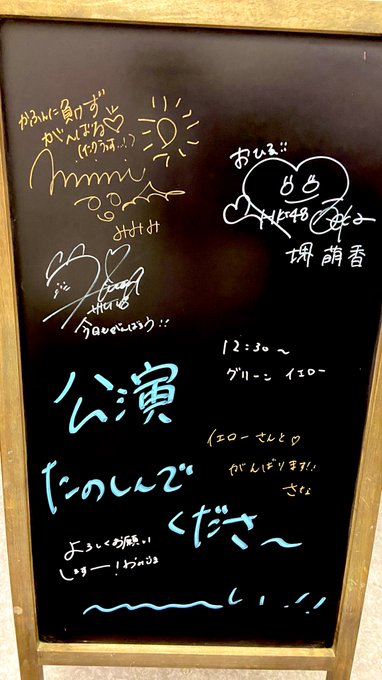 かふんに負けず
がんばる♡
みみみ
おひる!!
HKT48
堺 萌香
HKT48
今日もがんばろう!!
12:30〜
グリーン イエロー
公演
たのしんで
くださ〜
〜〜〜い!!
イエローさんと♡
がんばります!!
よろしくお願い
しますー!